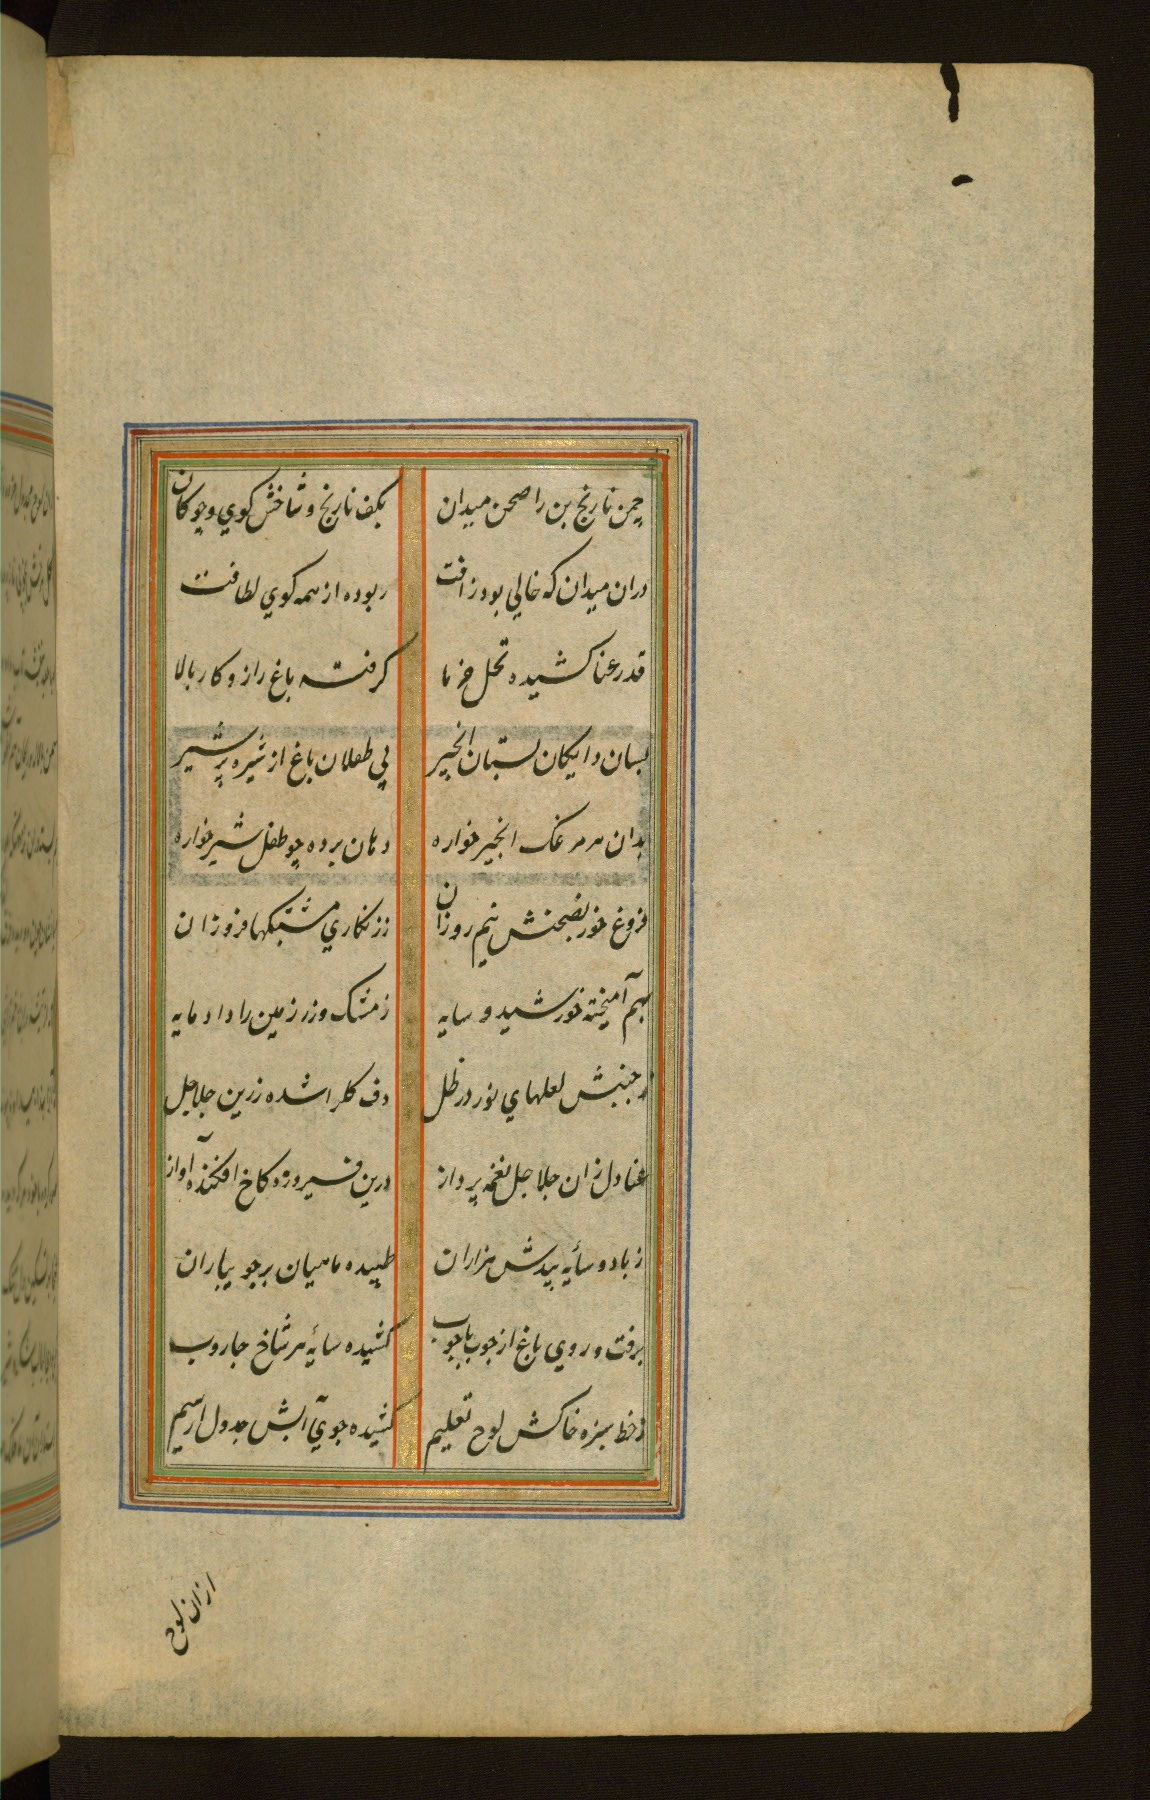 چمن نارنج بن را صحن میدان بکف نارنج و شاخش کوي و چوکان
دران میدان که خالي بود ز افت ربوده از همه کوي لطافت
قد رعنا کشیده نخل خرما کرفته باغ را زو کار بالا
بسان دایکان بستان انجیر پي طفلان باغ از شیره پر شیر
بدان هر مرغک انجیر خواره دهان برده چو طفل شیر خواره
فروغ خور بصحنش نیم روزان ز زنکاري مشبکها فروزان
بهم آمیخته خورشید و سایه ز مشک و زر زمین را داده مایه
ز جنبش لعلهاي نور در ظل دف کل را شده زرین جلاجل
عنادل زان جلاجل نغمه پرداز درین فیروزه کاخ افکنده آواز
ز باد و سایه بیدش هزاران طپیده ماهیان بر جویباران
برفت و روي باغ از جوب با جوب کشیده سایه هر شاخ جاروب
ز خط سبزه خاکش لوح تعلیم کشیده جوي آبش جدول از سیم
ازان لوح